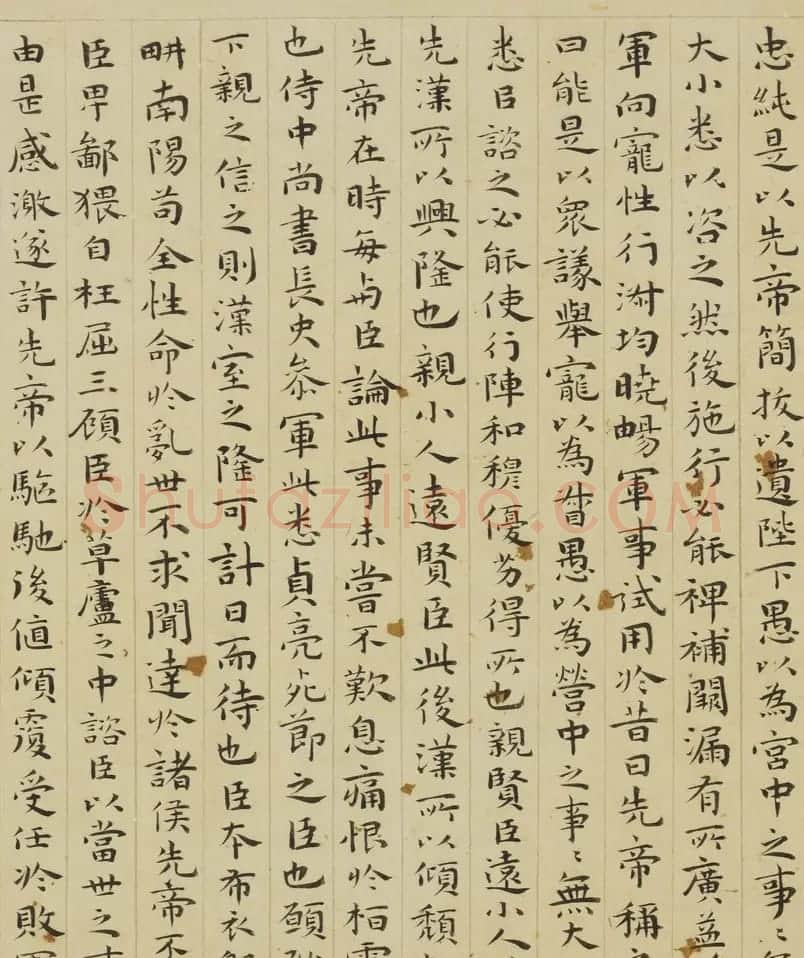 忠純是以先帝簡拔以遺陛下愚以為宮中之事〻
大小悉以咨之然後施行必能裨補闕漏有所廣益
軍向寵性行淑均曉暢軍事試用於昔日先帝稱
曰能是以衆議舉寵以為督愚以為營中之事〻無大
悉以諮之必能使行陣和穆優劣得所也親賢臣遠小人
先漢所以興隆也親小人遠賢臣此後漢所以傾頹
先帝在時每与臣論此事未嘗不歎息痛恨於桓
也侍中尚書長史叅軍此悉貞亮死節之臣也願
下親之信之則漢室之隆可計日而待也臣本布衣
畊南陽苟全性命於亂世不求聞達於諸侯先帝不
臣卑鄙猥自枉屈三顧臣於草廬之中諮臣以當世之
由是感激遂許先帝以驅馳後値傾覆受任於敗
Shufaziliao.COM